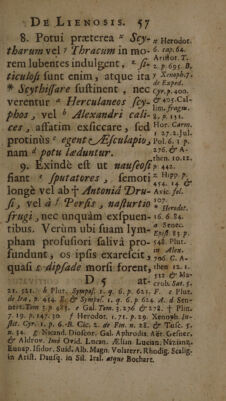 DE LIENOSIS. 57
8. Potui præterea ˣ Scy-
tharum vel ʸ Thracum in mo-
rem lubentes indulgent, ᶻ si-
ticulosi sunt enim, atque ita
* Scythissare sustinent, nec
verentur ᵃ Herculaneos scy-
phos, vel ᵇ Alexandri cali-
ces, affatim exsiccare, sed
protinùs ᶜ egent Æsculapio,
nam ᵈ potu læduntur.
9. Exindè est ut nauseosi
fiant ˣ sputatores, semoti
longè vel ab † Antoniâ Dru-
si, vel à ‖ Persis, nasturtio
frugi, nec unquàm exspuen-
tibus. Verùm ubi suam lym-
pham profusiori salivâ pro-
fundunt, os ipsis exarescit,
quasi ᵋ dipsade morsi forent,
D 5 at-
x Herodot.
6. cap. 64.
Aristot. T.
2. p. 695. B.
y Xenoph. 7.
de Exped.
Cyr. p. 400.
& 405. Cal-
lim. fragm.
8. p. 131.
Hor. Carm.
1 27. 2. Jul.
Pol. 6. 3 p.
276. & A-
then. 10. 12.
p. 442.
z Hipp. p.
454. 14 &
Avic. fol.
107.
* Herodot.
16. 6. 84.
a Senec.
Epist 83 p.
548 Plut.
in Alex.
706. C. A-
then 12. 1.
512 & Ma-
crob. Sat. 5.
21. 521. b Plut. Sympos. 1. q. 6. p. 621. F. c Plut.
de Ira, p. 454. E. & Sympos. 1. q. 6. p. 624 A. d Sen-
nert. Tom 3. p 485. e Gal. Tom. 3. 276 & 278. † Plin.
7. 19. p. 147. 30 ‖ Herodot. 1. 71. p. 29. Xenoph. In-
stit. Cyr. 1. p. 6. B. Cic. 2. de Fin. n. 28. & Tusc. 5.
n. 34. g Nicand. Dioscor. Gal. Aphrodis. Aët. Gesner.
& Aldrov. Imò Ovid. Lucan. Ælian Lucian. Nazianz.
Eunap. Isidor. Suid. Alb. Magn. Volaterr. Rhodig. Scalig.
in Arist. Dausq. in Sil. Ital. atque Bochart.